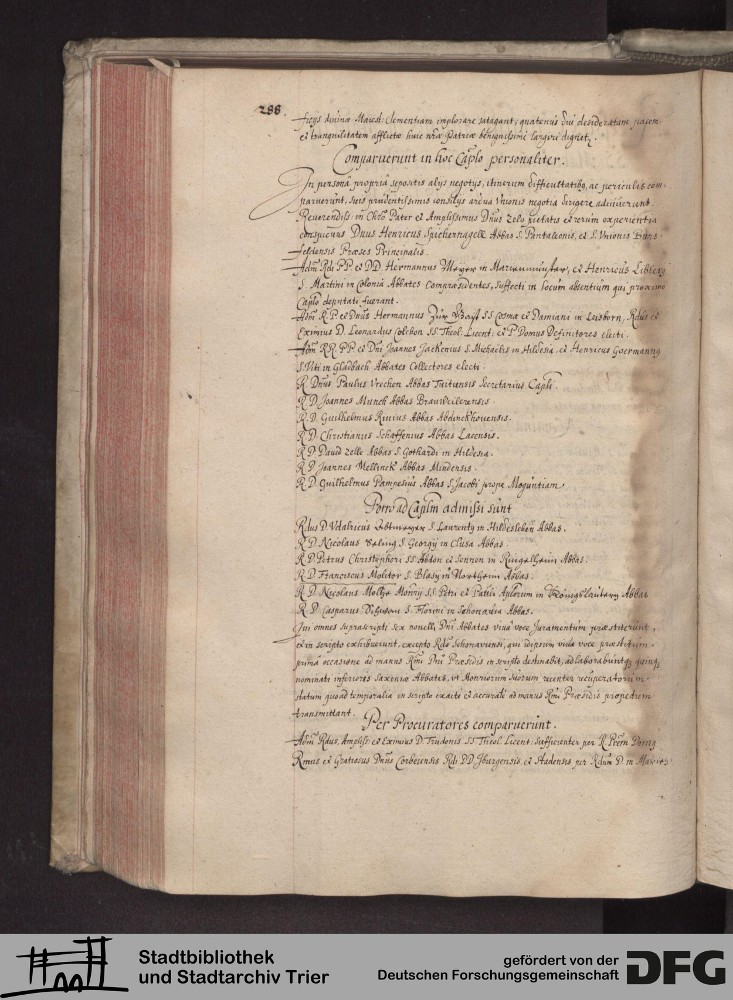 288.
ficijs divinae Maiest: Clementiam implorare satagant, quatenus sui desideratam pacem
et tranquilitatem afflictae huic nrae Patriae benignissime largiri dignetr.
Comparuerunt in hoc Caplo personaliter.
In persona propria sepositis alijs negotijs, itinerum difficultatibq ac periculis com-
paruerunt, suis prudentissimis consilijs ardua Unionis negotia dirigere adiuverunt.
Reverendiss: in Chro Pater et Amplissimus Dnus zelo pietatis et rerum experientia
conspicuus Dnus Henricus Spichernagell Abbas S. Pantaleonis, et S. Unionis Burs-
feldensis Praeses Principalis.
Adm Rdi PP. et DD. Hermannus Meyer in Marienmunster, et Henricus Liblery
S. Martini in Colonia Abbates Compraesidentes, suffecti in locum absentium qui proximo
Caplo deputati fuerant.
Adm R.P. et Dnus Hermannus SS. Cosmae et Damiani in Leisborn, Rdus et
Eximius D. Leonardus Colchon SS. Theol. Licent: et P Domus Definitores electi.
Adm RR. PP. et Dni Joannes Jackenius S. Michaelis in Hildesia, et Henricus Goermanng
S. Viti in Gladbach Abbates Collectores electi.
R. Dnus Paulus Vrechen Abbas Tuitiensis Secretarius Capli.
R. D. Joannes Munch Abbas Brauweilerensis.
R. D. Guilhelmus Rivius Abbas Abdinckhovensis.
R. D. Christianus Schaffenius Abbas Lacensis.
R. D. David zelle Abbas S. Gothardi in Hildesia.
R. D. Joannes Mellinck Abbas Mindensis.
R. D. Guilhelmus Pampesius Abbas S. Jacobi prope Moguntiam.
Porro ad Caplm admissi sunt
Rdus D. Udalricus S. Laurentij in Hildesleben Abbas.
R. D. Nicolaus S. Georgij in Clusa Abbas.
R. D. Petrus Christophori SS. Abdon et Sennen in Ringelheim Abbas.
R. D. Franciscus Molitor S. Blasij in Northeim Abbas.
R. D. Nicolaus Monrij SS. Petri et Pauli Aplorum in Königslautern Abbas
R. D. Casparus S. Florini in Schonavia Abbas.
Qui omnes suprascripti sex novelli Dni Abbates viva voce Juramentum praestiterunt,
et in scripto exhibuerunt, excepto Rdo Schonaviensi, qui idipsum viva voce praestitum
prima occasione ad manus Rmi Dni Praesidis in scripto destinabit, ad laborabuntq quinq
nominati inferioris Saxoniae Abbates, ut Monriorum suorum recenter recuperatorum
statum quoad temporalia in scripto exacte et accurate ad manus Rmi Praesidis propediem
transmittant.
Per Procuratores comparuerunt.
Adm Rdus, Ampliss: et Eximius D. Trudonis SS. Theol. Licent: sufficienter per R. Prem
Rmus et Gratiosus Dnus Corbeiensis Rdi DD. Iburgensis, et Stadensis per Rdum D. in
Stadtbibliothek
und Stadtarchiv Trier
gefördert von der
Deutschen Forschungsgemeinschaft
DFG